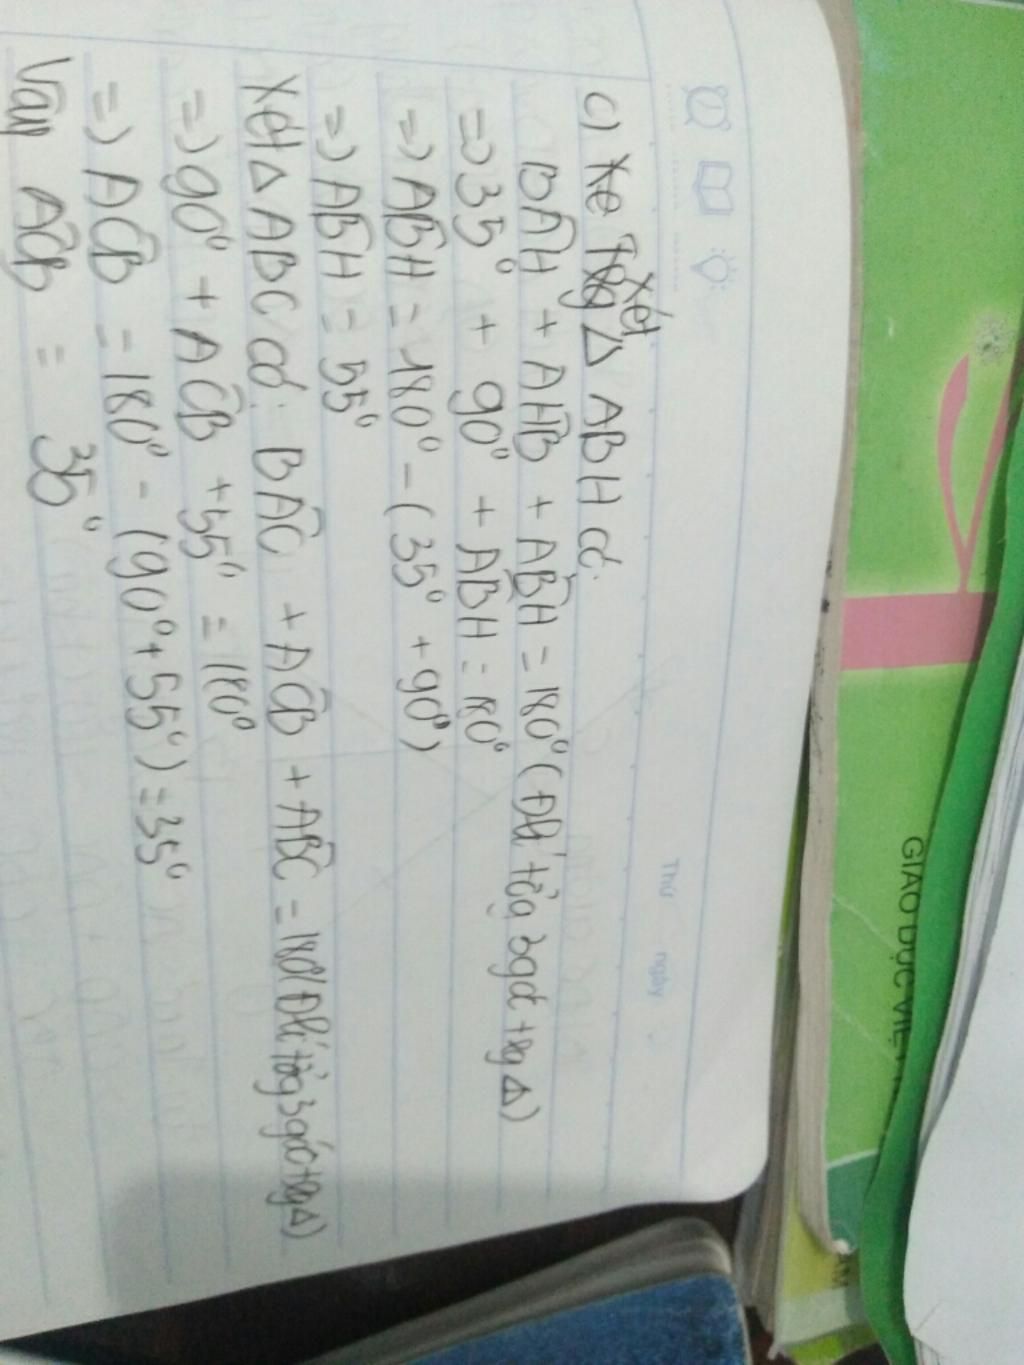 Thứ ngày
c) Xe Trg Xét Δ ABH có:
BÂH + AĤB + AB̂H = 180° (Đlí tổg 3góc trg Δ)
=> 35° + 90° + AB̂H = 180°
=> AB̂H = 180° - (35° + 90°)
=> AB̂H = 55°
Xét Δ ABC có: BÂC + AĈB + AB̂C = 180° (Đlí tổg 3góc trg Δ)
=> 90° + AĈB + 55° = 180°
=> AĈB = 180° - (90° + 55°) = 35°
Vậy AĈB = 35°
GIÁO DỤC VIỆT
AM